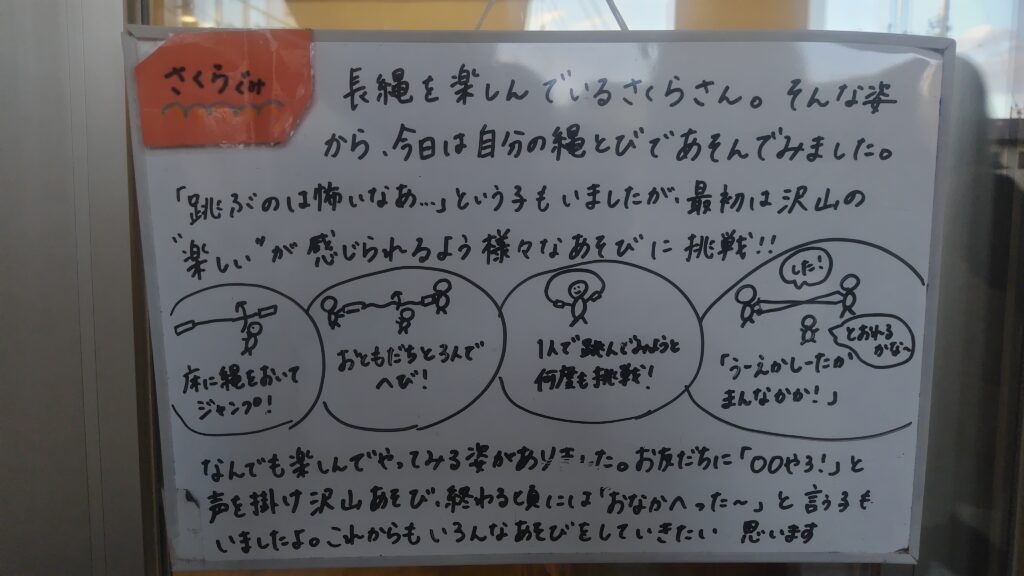 さくらぐみ
長縄を楽しんでいるさくらさん。そんな姿
から、今日は自分の縄とびであそんでみました。
「跳ぶのは怖いなあ…」という子もいましたが、最初は沢山の
"楽しい"が感じられるよう様々なあそびに挑戦!!
床に縄をおいて
ジャンプ!
おともだちと3人で
へび!
1人で跳んでみようと
何度も挑戦!
した!
とおれる
かな~
「うーえかしーたか
まんなかか!」
なんでも楽しんでやってみる姿がありました。お友だちに「〇〇やろ!」と
声を掛け沢山あそび、終わる頃には「おなかへった~」と言う子も
いましたよ。これからもいろんなあそびをしていきたい 思います